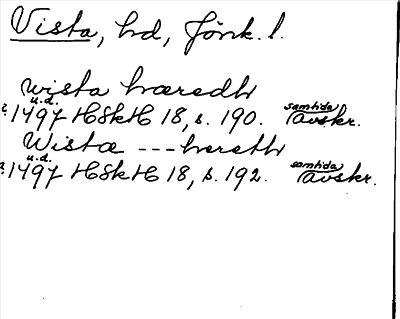 Vista, hd, Jönk. l.
wista hæredh
u.d. samtida
? 1497 HSkH 18, s. 190. avskr.
Wistæ --- hereth
u.d. samtida
? 1497 HSkH 18, s. 192. avskr.